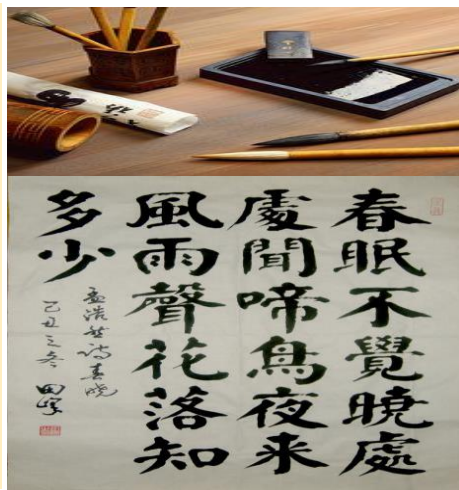 春眠不覺曉處
處聞啼鳥夜来
風雨聲花落知
多少
孟浩然诗春晓
己丑之冬 田